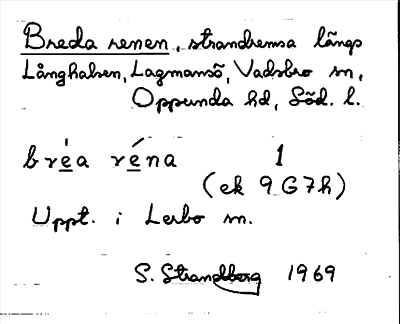 Breda renen, strandremsa längs
Långhalsen, Lagmansö, Vadsbro sn,
Oppunda hd, Söd. l.
bréa réna 1
(ek 9G7h)
Uppt. i Lerbo sn.
S. Strandberg 1969